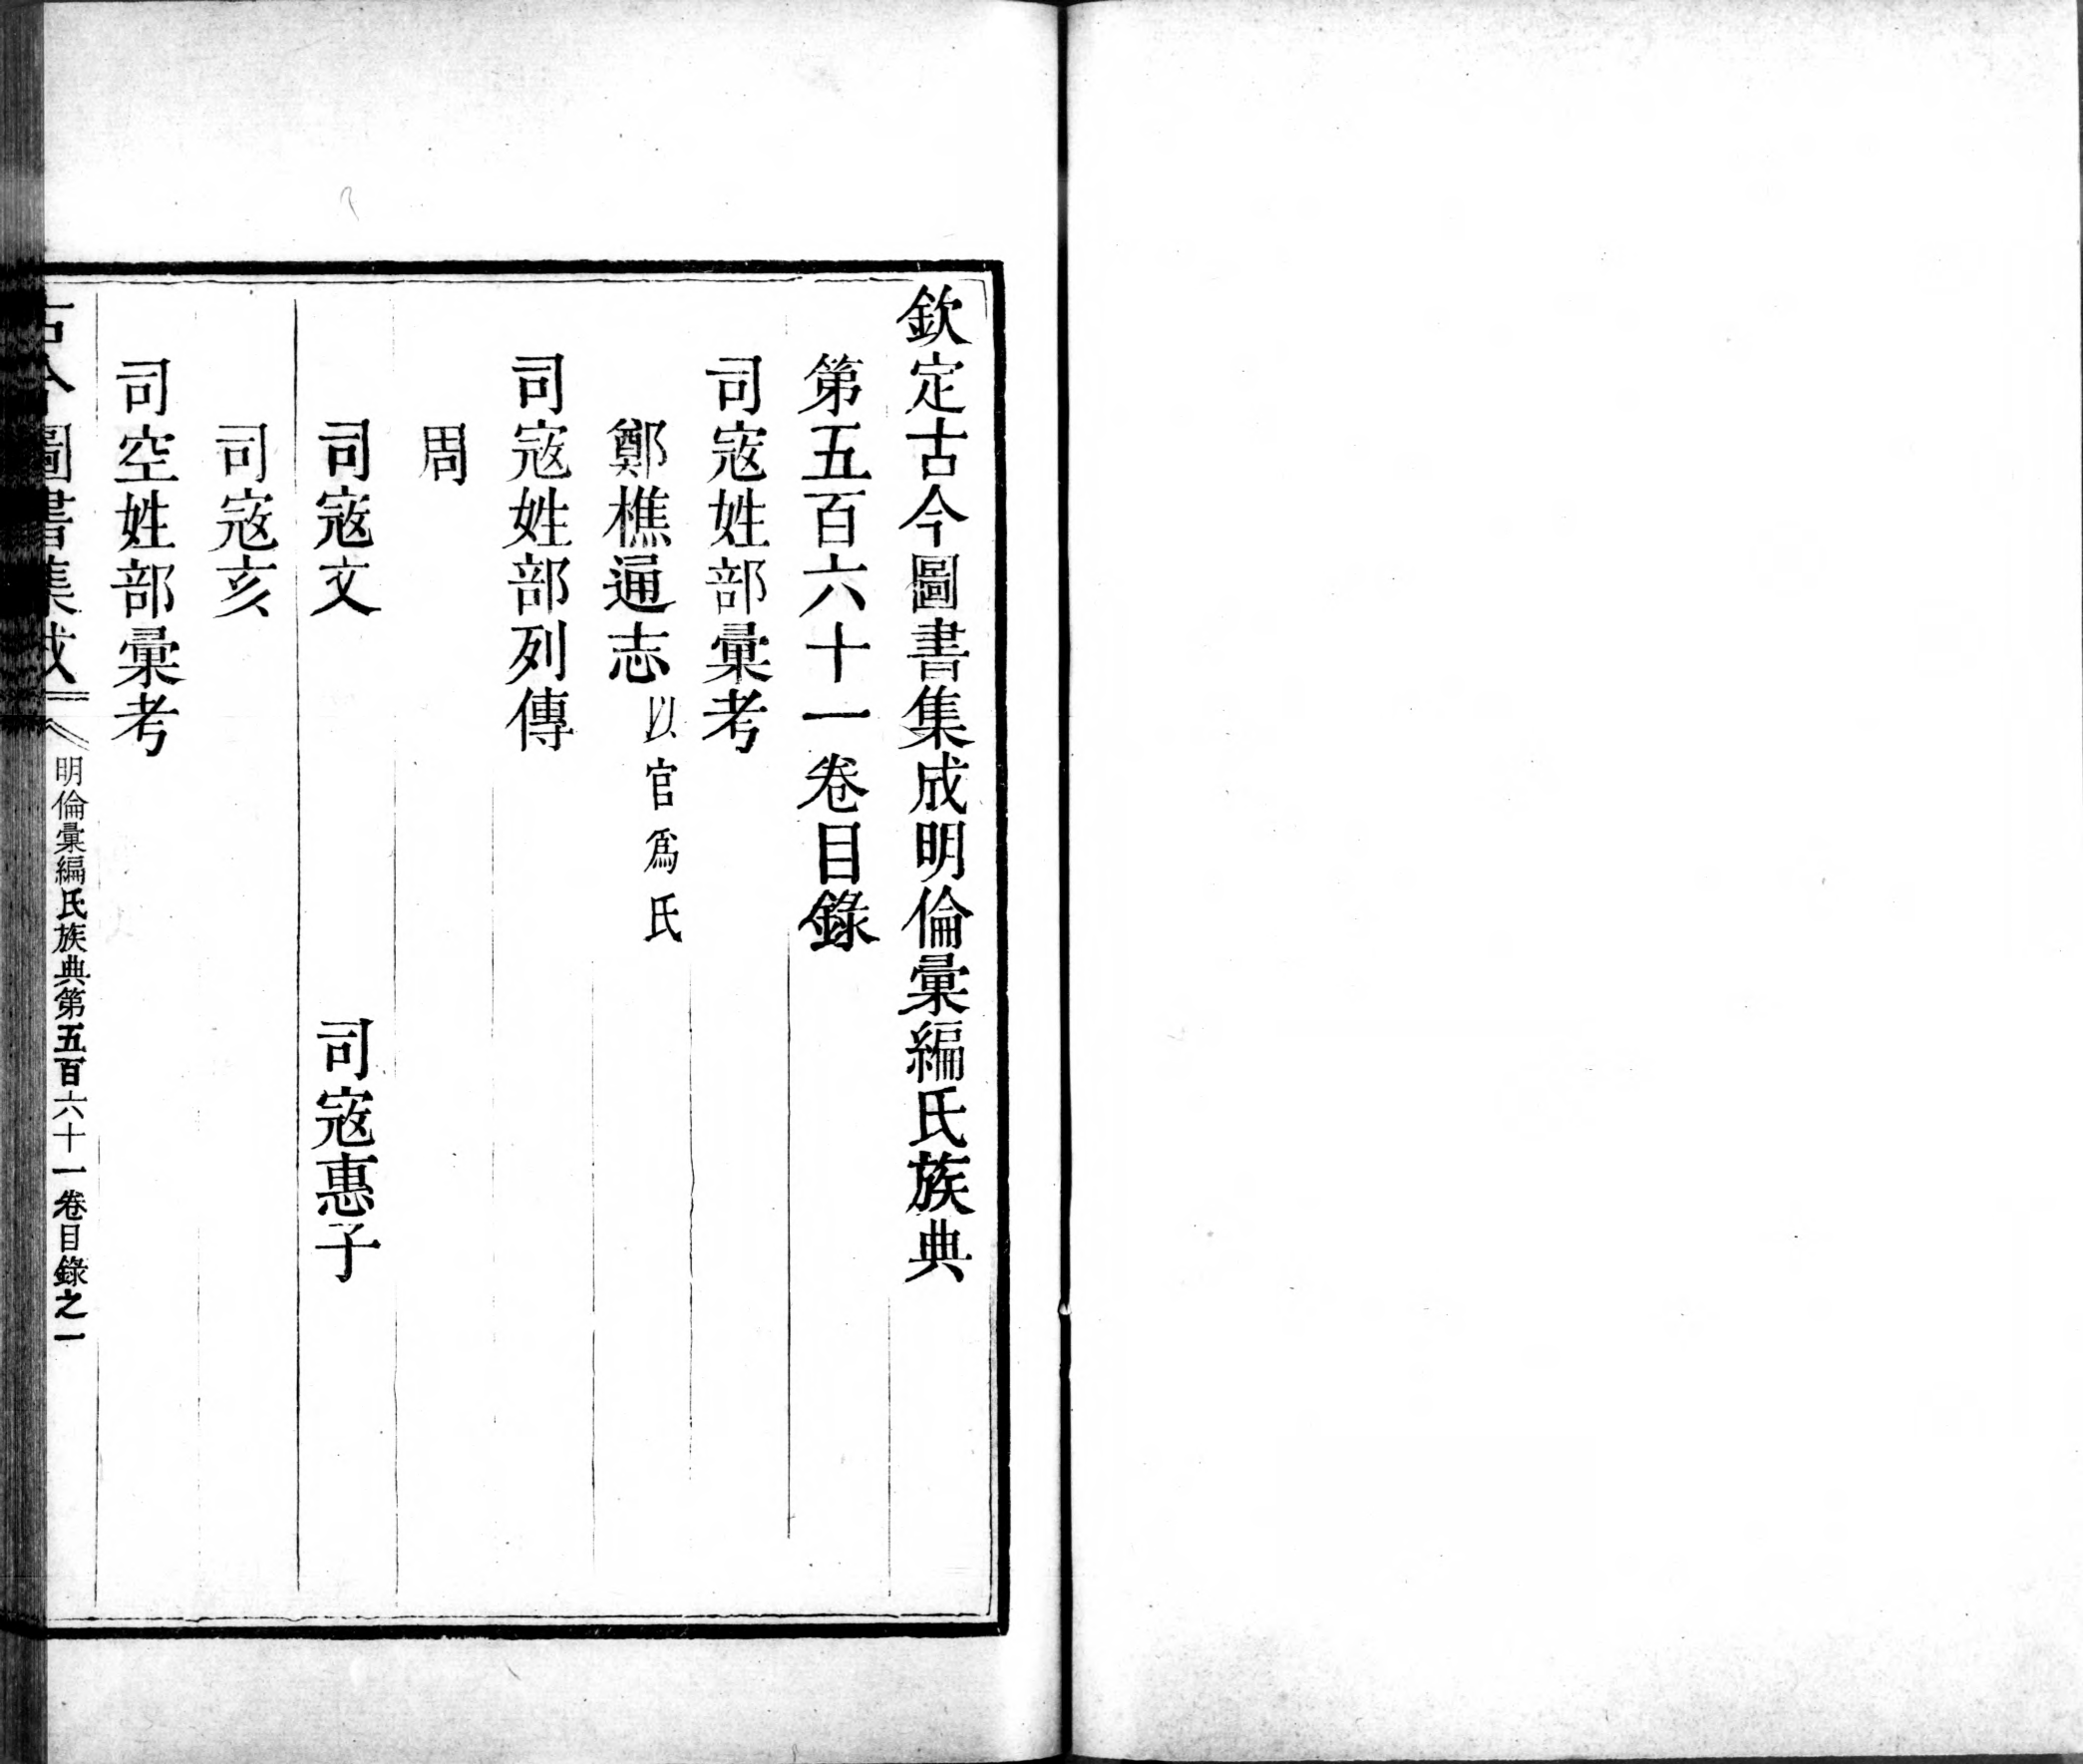 欽定古今圖書集成明倫彙編氏族典
第五百六十一卷目錄
司寇姓部彙考
鄭樵通志以官爲氏
司寇姓部列傳
周
司寇文　司寇惠子
司寇亥
司空姓部彙考
古今圖書集成 明倫彙編氏族典第五百六十一卷目錄之一